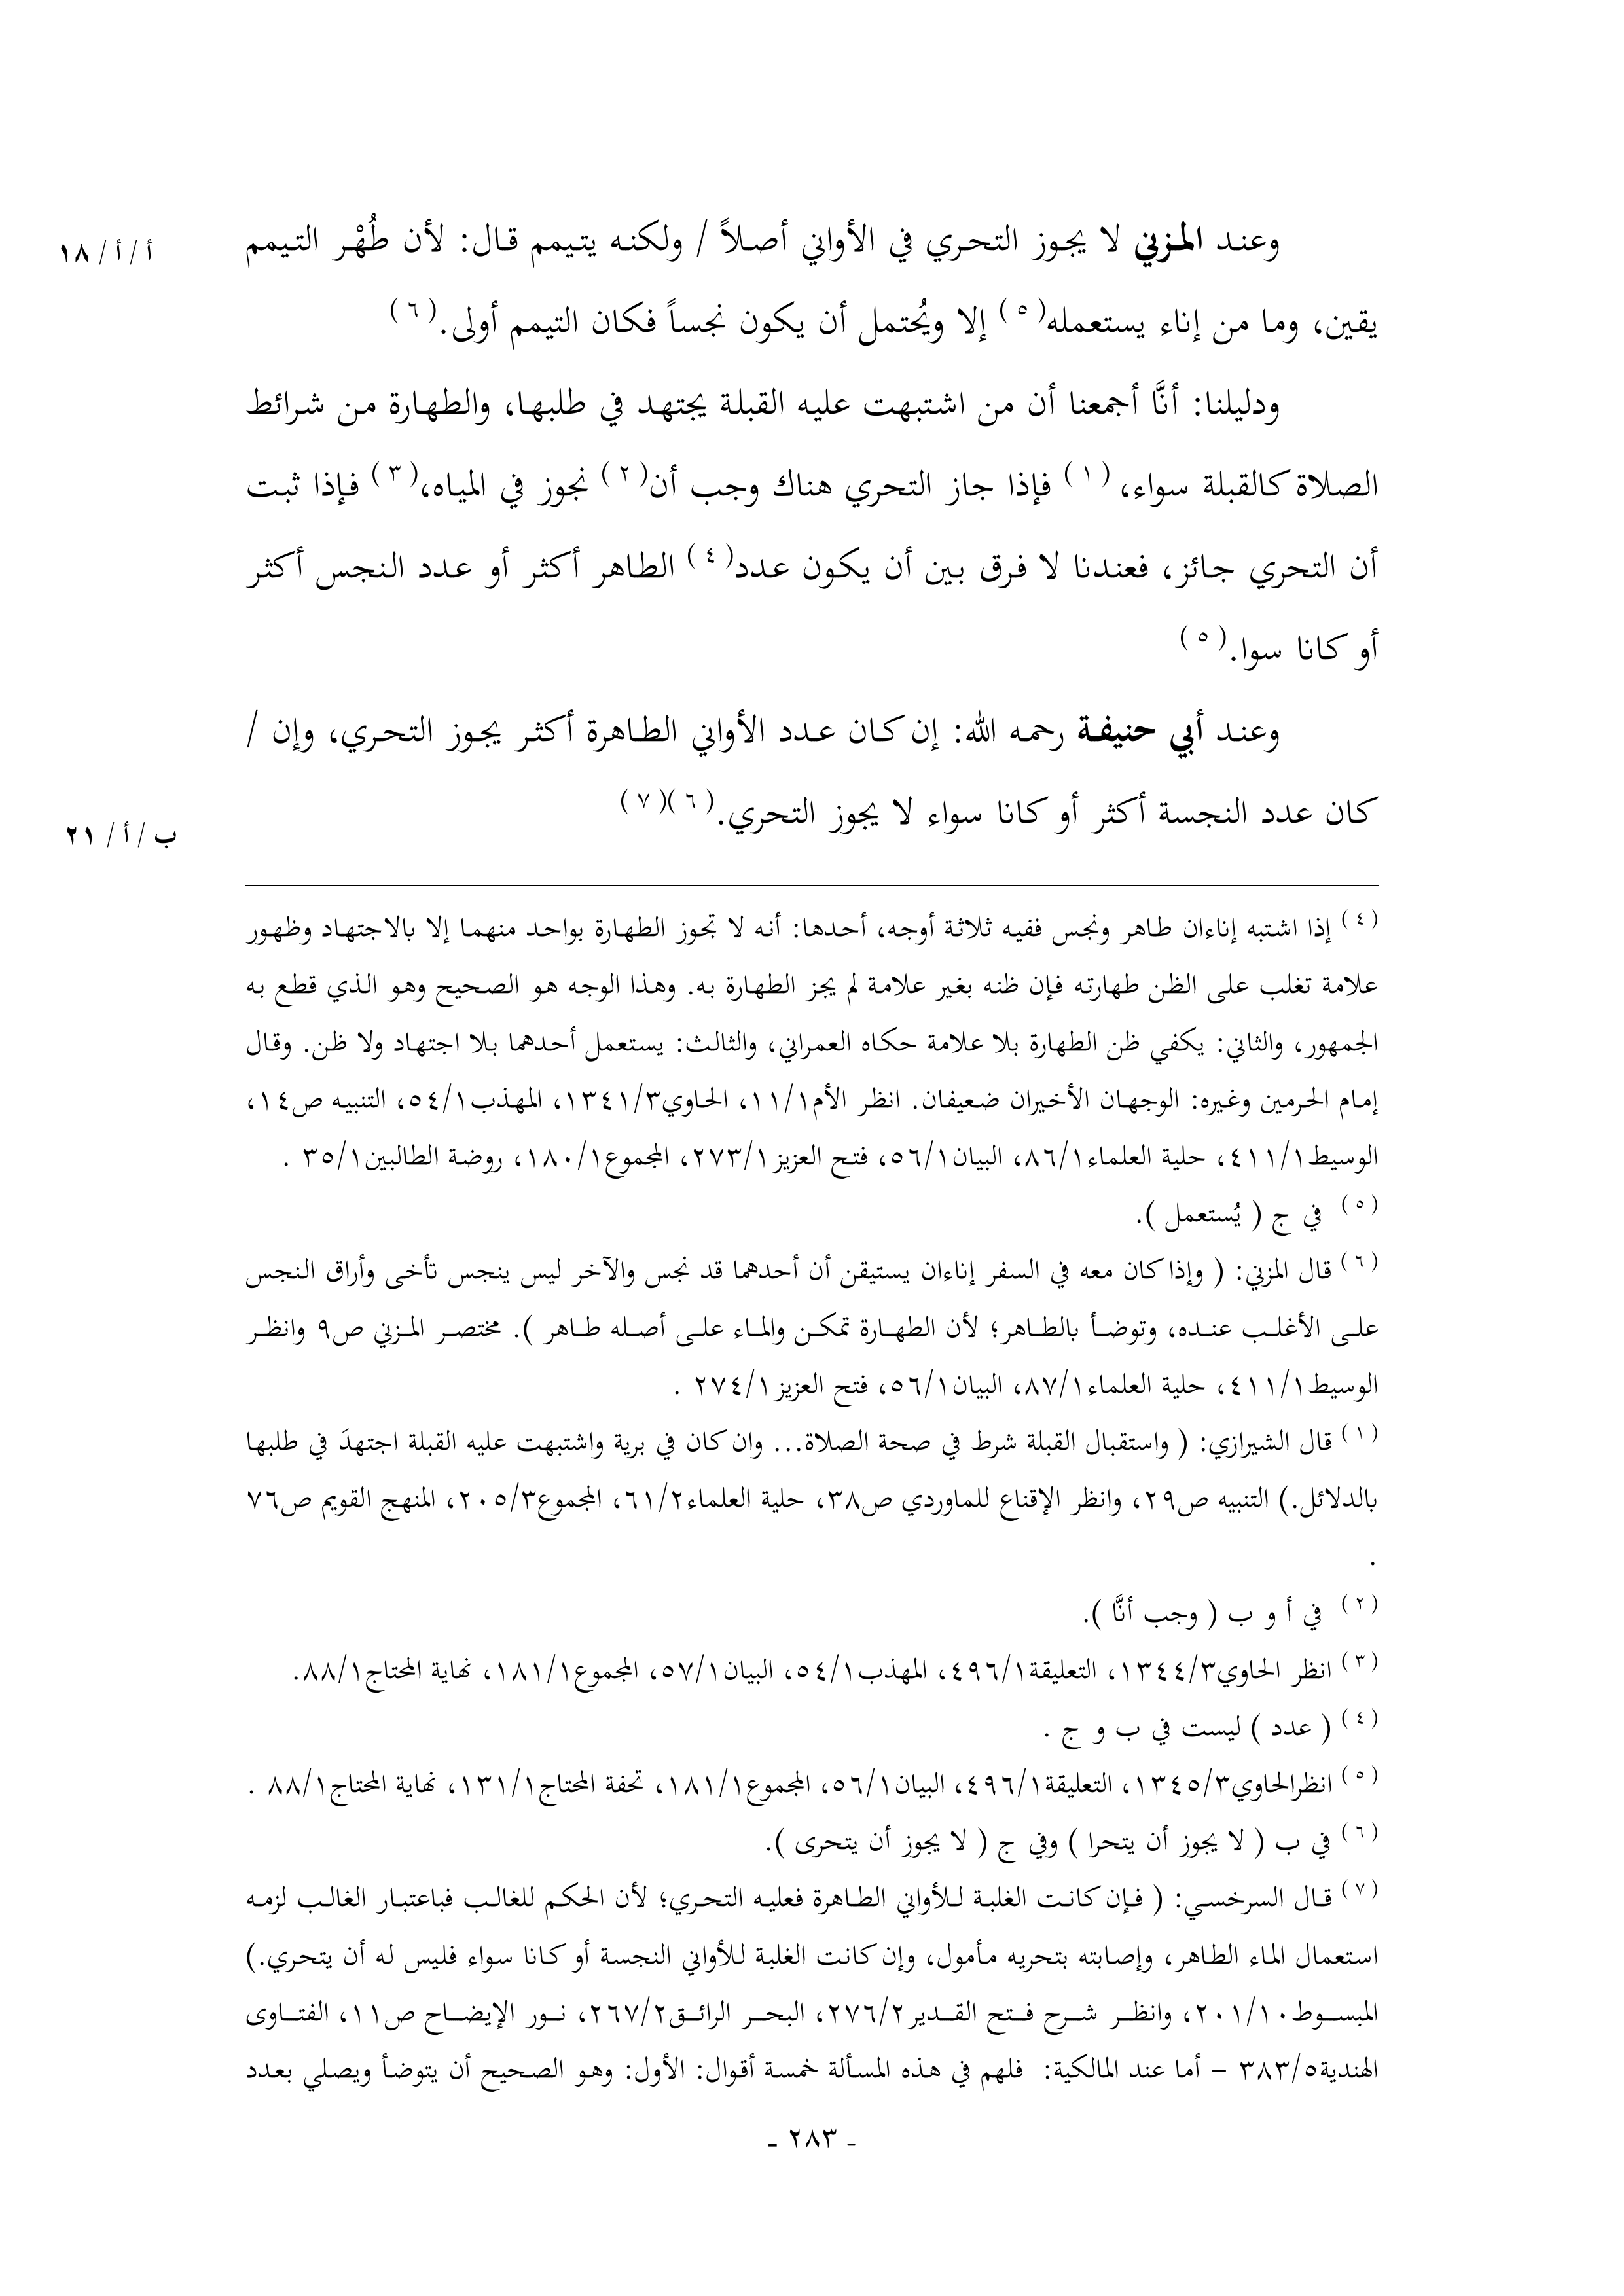 وعند المزني لا يجوز التحري في الأواني أصلاً / ولكنه يتيمم قال: لأن طُهْر التيمم
أ/أ/ ١٨
يقين، وما من إناء يستعمله(٥) إلا ويُحتمل أن يكون نجساً فكان التيمم أولى.(٦)
ودليلنا: أنَّا أجمعنا أن من اشتبهت عليه القبلة يجتهد في طلبها، والطهارة من شرائط
الصلاة كالقبلة سواء،(١) فإذا جاز التحري هناك وجب أن(٢) نجوز في المياه،(٣) فإذا ثبت
أن التحري جائز، فعندنا لا فرق بين أن يكون عدد(٤) الطاهر أكثر أو عدد النجس أكثر
أو كانا سوا.(٥)
وعند أبي حنيفة رحمه الله: إن كان عدد الأواني الطاهرة أكثر يجوز التحري، وإن /
كان عدد النجسة أكثر أو كانا سواء لا يجوز التحري.(٦)(٧)
ب/أ/ ٢١
(٤) إذا اشتبه إناءان طاهر ونجس ففيه ثلاثة أوجه، أحدها: أنه لا تجوز الطهارة بواحد منهما إلا بالاجتهاد وظهور
علامة تغلب على الظن طهارته فإن ظنه بغير علامة لم يجز الطهارة به. وهذا الوجه هو الصحيح وهو الذي قطع به
الجمهور، والثاني: يكفي ظن الطهارة بلا علامة حكاه العمراني، والثالث: يستعمل أحدهما بلا اجتهاد ولا ظن. وقال
إمام الحرمين وغيره: الوجهان الأخيران ضعيفان. انظر الأم١١/١، الحاوي١٣٤١/٣، المهذب٥٤/١، التنبيه ص١٤،
الوسيط٤١١/١، حلية العلماء٨٦/١، البيان٥٦/١، فتح العزيز٢٧٣/١، المجموع١٨٠/١، روضة الطالبين٣٥/١ .
(٥) في ج ( يُستعمل ).
(٦) قال المزني: ( وإذا كان معه في السفر إناءان يستيقن أن أحدهما قد نجس والآخر ليس ينجس تأخى وأراق النجس
على الأغلب عنده، وتوضأ بالطاهر؛ لأن الطهارة تمكن والماء على أصله طاهر ). مختصر المزني ص٩ وانظر
الوسيط٤١١/١، حلية العلماء٨٧/١، البيان٥٦/١، فتح العزيز٢٧٤/١ .
(١) قال الشيرازي: ( واستقبال القبلة شرط في صحة الصلاة... وان كان في برية واشتبهت عليه القبلة اجتهدَ في طلبها
بالدلائل.) التنبيه ص٢٩، وانظر الإقناع للماوردي ص٣٨، حلية العلماء٦١/٢، المجموع٢٠٥/٣، المنهج القويم ص٧٦
.
(٢) في أ و ب ( وجب أنَّا ).
(٣) انظر الحاوي١٣٤٤/٣، التعليقة٤٩٦/١، المهذب٥٤/١، البيان٥٧/١، المجموع١٨١/١، نهاية المحتاج٨٨/١.
(٤) ( عدد ) ليست في ب و ج .
(٥) انظرالحاوي١٣٤٥/٣، التعليقة٤٩٦/١، البيان٥٦/١، المجموع١٨١/١، تحفة المحتاج١٣١/١، نهاية المحتاج٨٨/١ .
(٦) في ب ( لا يجوز أن يتحرا ) وفي ج ( لا يجوز أن يتحرى ).
(٧) قال السرخسي: ( فإن كانت الغلبة للأواني الطاهرة فعليه التحري؛ لأن الحكم للغالب فباعتبار الغالب لزمه
استعمال الماء الطاهر، وإصابته بتحريه مأمول، وإن كانت الغلبة للأواني النجسة أو كانا سواء فليس له أن يتحري.)
المبسوط٢٠١/١٠، وانظر شرح فتح القدير٢٧٦/٢، البحر الرائق٢٦٧/٢، نور الإيضاح ص١١، الفتاوى
الهندية٣٨٣/٥ – أما عند المالكية: فلهم في هذه المسألة خمسة أقوال: الأول: وهو الصحيح أن يتوضأ ويصلي بعدد
- ٢٨٣ -